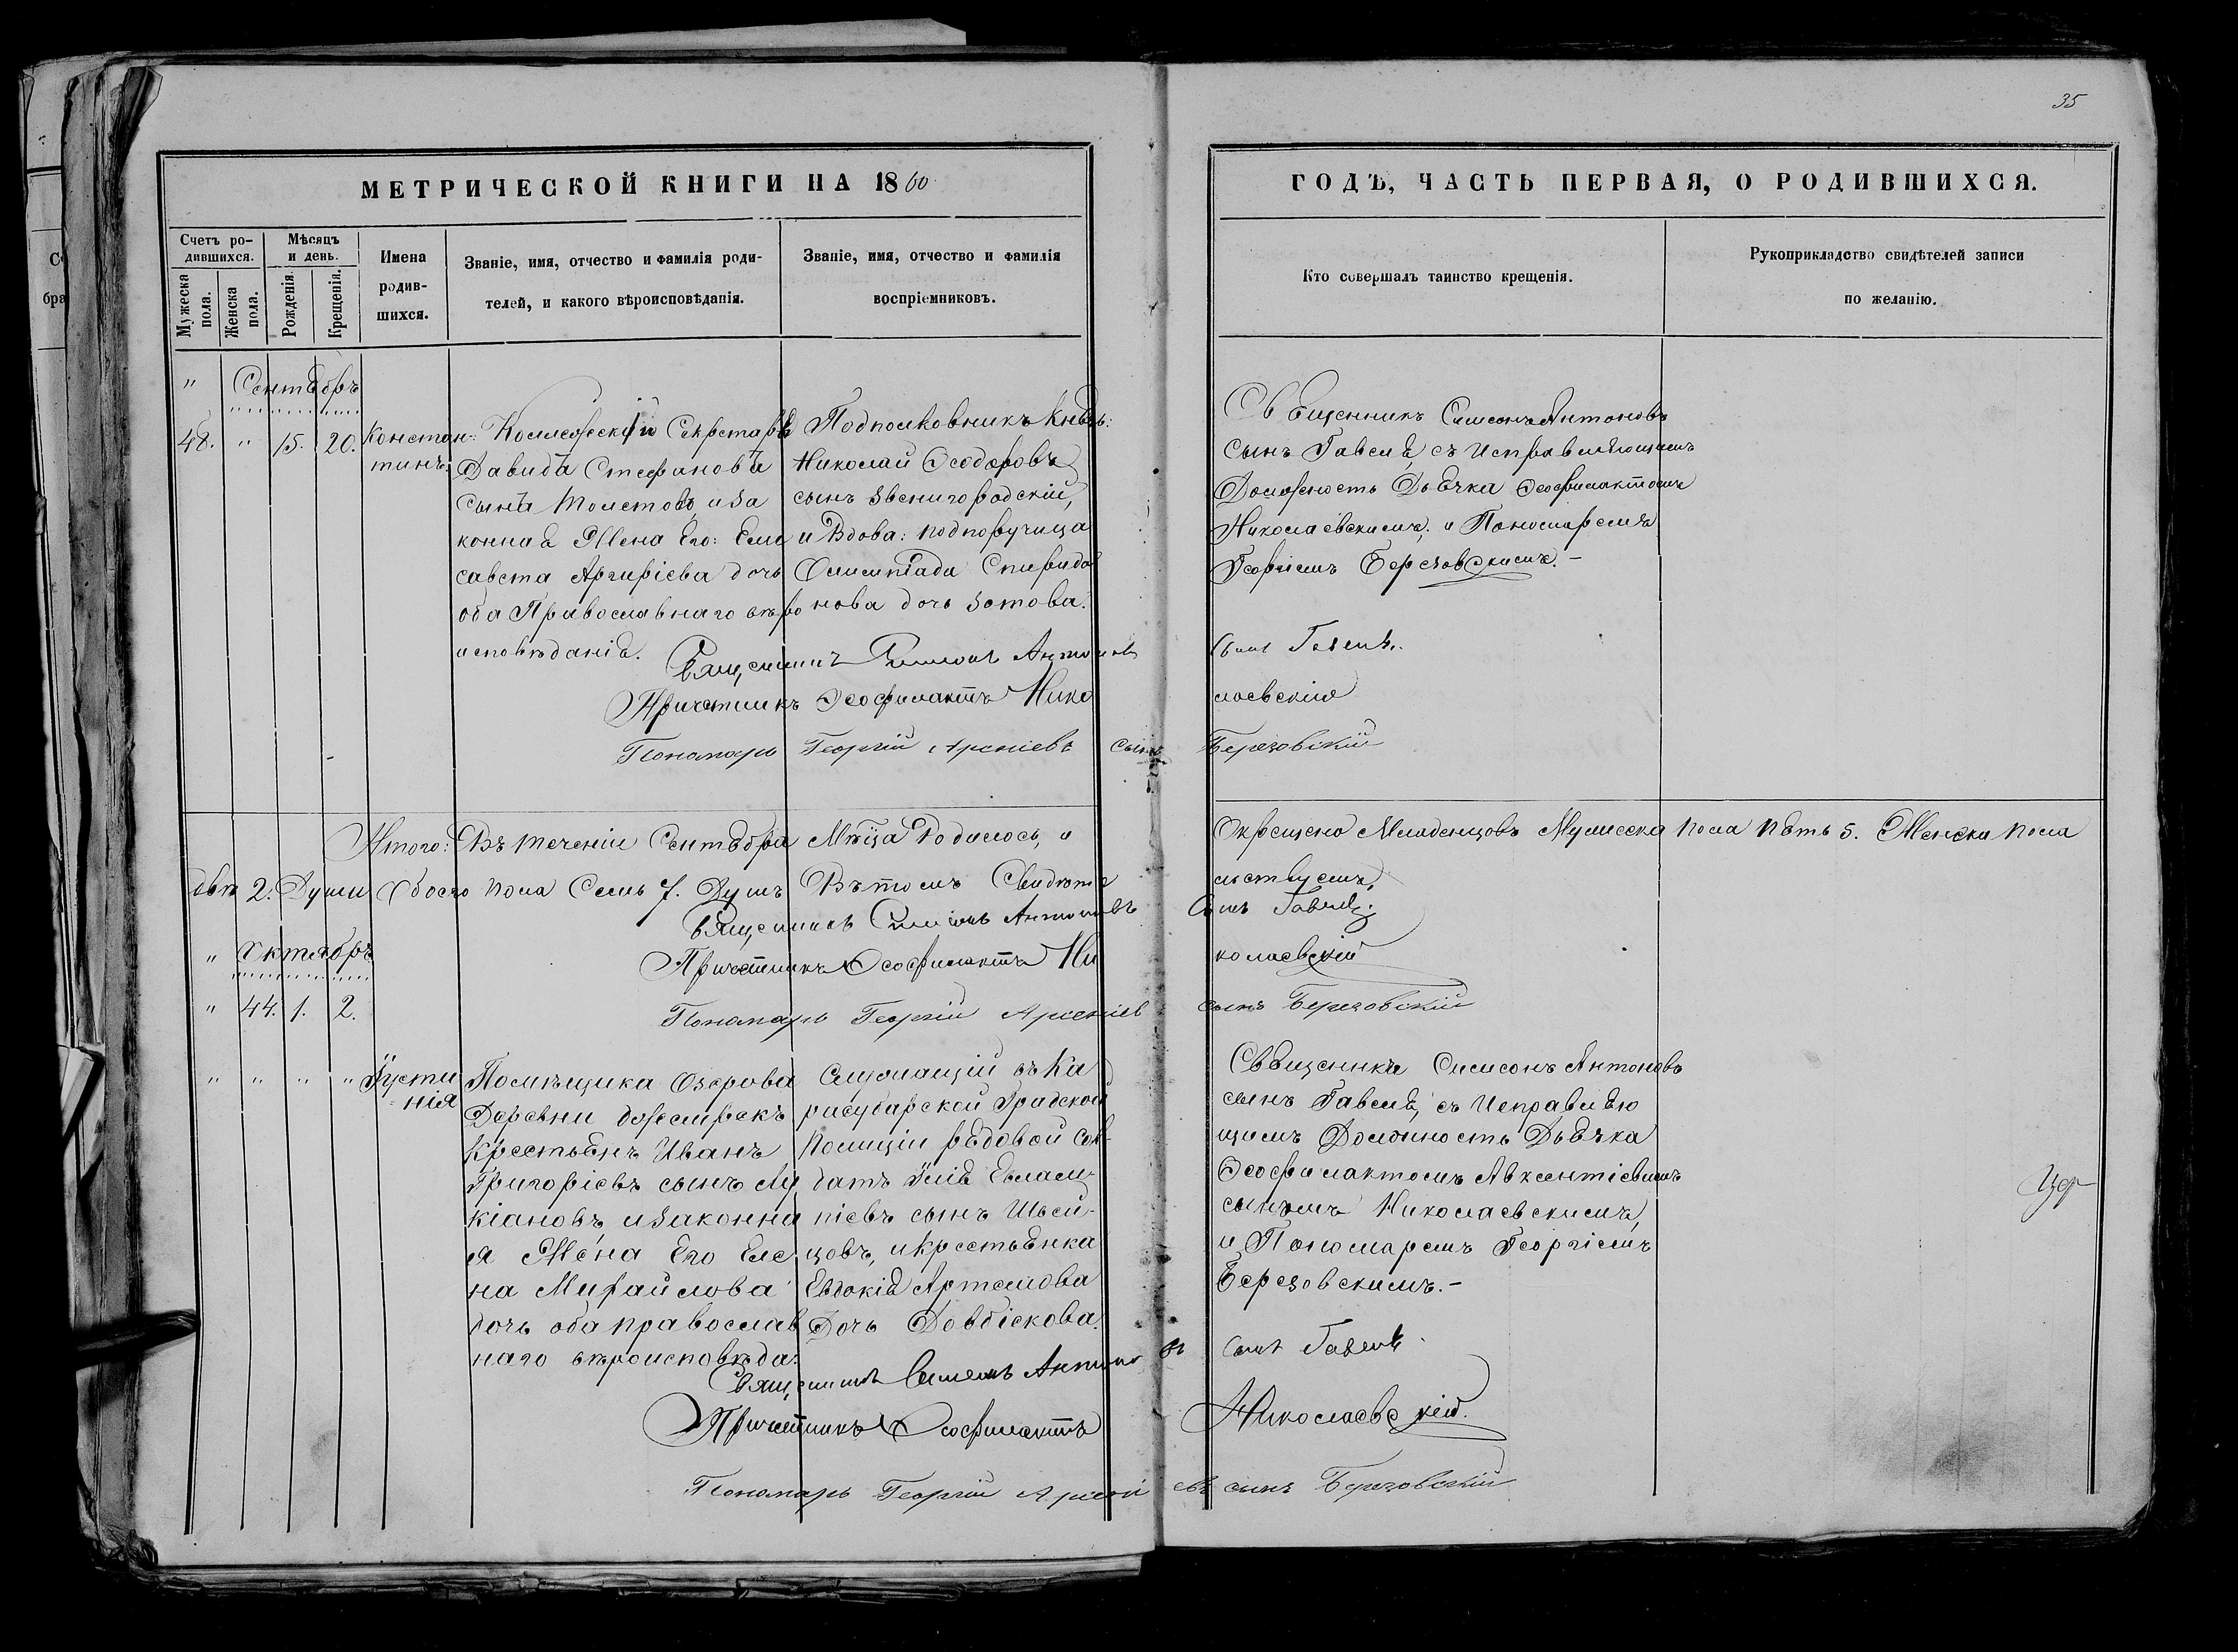 35
МЕТРИЧЕСКОЙ КНИГИ НА 1860
ГОДЪ, ЧАСТЬ ПЕРВАЯ, О РОДИВШИХСЯ.
Счетъ ро-
дившихся.
Мужеска пола.
Женска пола.
Мѣсяцъ
и день.
Рожденія.
Крещенія.
Имена
родив-
шихся.
Званіе, имя, отчество и фамилія роди-
телей, и какого вѣроисповѣданія.
Званіе, имя, отчество и фамилія
воспріемниковъ.
Кто совершалъ таинство крещенія.
Рукоприкладство свидѣтелей записи
по желанію.
" Сентябръ
48. " 15. 20.
Констан=
тинъ.
Секретарь
Давидъ Стефановъ
сынъ и за
конная Жена Его: Ели
савета Аргиріева дочь
оба Православнаго вѣро
исповѣданія.
Подполковникъ Князь:
Николай Ѳеодоровъ
сынъ Звенигородскій,
и Вдова: подпоручица
Олимпіада Спиридо
нова дочь Зотова.
Священникъ Симеонъ Антоновъ
сынъ Гавеля, съ Исправляющимъ
Должность Дьячка Ѳеофилактомъ
Николаевскимъ, и Пономаремъ
Георгіемъ Березовскимъ.-
Священникъ Симеонъ Антоновъ сынъ Гавеля.
Причетникъ Ѳеофилактъ Николаевскій
Пономарь Георгій Арсеніевъ сынъ Березовскій
Итого: Въ теченіи Сентября Мѣца Родилось, и Окрещено Младенцовъ Мужеска пола пять 5. Женска пола
двѣ 2. Души Обоего пола Семь 7. Душъ Въ томъ Свидѣтельствуемъ,
Священникъ Симеонъ Антоновъ сынъ Гавеля.
" Октябръ
Причетникъ Ѳеофилактъ Николаевскій
" 44. 1. 2.
Пономарь Георгій Арсеніев сынъ Березовскій
" " " "
Іусти
нія
Помѣщика Озерова
Деревни
Крестьянъ Иванъ
Григоріевъ сынъ Лу
кіановъ, и законна
я Жена Его Еле
на Михайлова
дочь оба православ
наго вѣроисповѣда:
Служащій въ Ка
расубарской Градской
Полиціи рядовой сол-
датъ Илія Евлам-
піевъ сынъ Швей-
цовъ, и Крестьянка
Евдокія Артемова
Дочь Довбіскова.
Священникъ Симеонъ Антоновъ
сынъ Гавеля, съ Исправляю
щимъ Должность Дьячка
Ѳеофилактомъ Авксентіевымъ
сыномъ Николаевскимъ,
и Пономаремъ Георгіемъ
Березовскимъ.-
Священникъ Симеонъ Антоновъ сынъ Гавеля.
Причетникъ Ѳеофилактъ Николаевскій.
Пономарь Георгій Арсеніевъ сынъ Березовскій